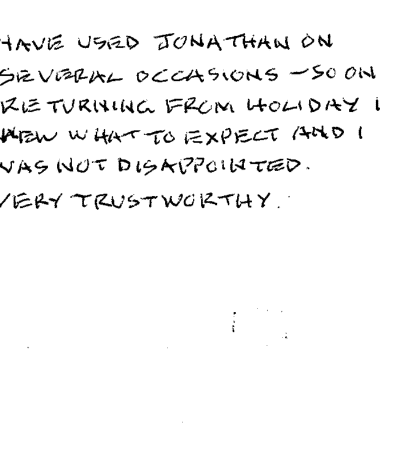 HAVE USED JONATHAN ON
SEVERAL OCCASIONS – SO ON
RETURNING FROM HOLIDAY I
KNEW WHAT TO EXPECT AND I
WAS NOT DISAPPOINTED.
VERY TRUSTWORTHY.